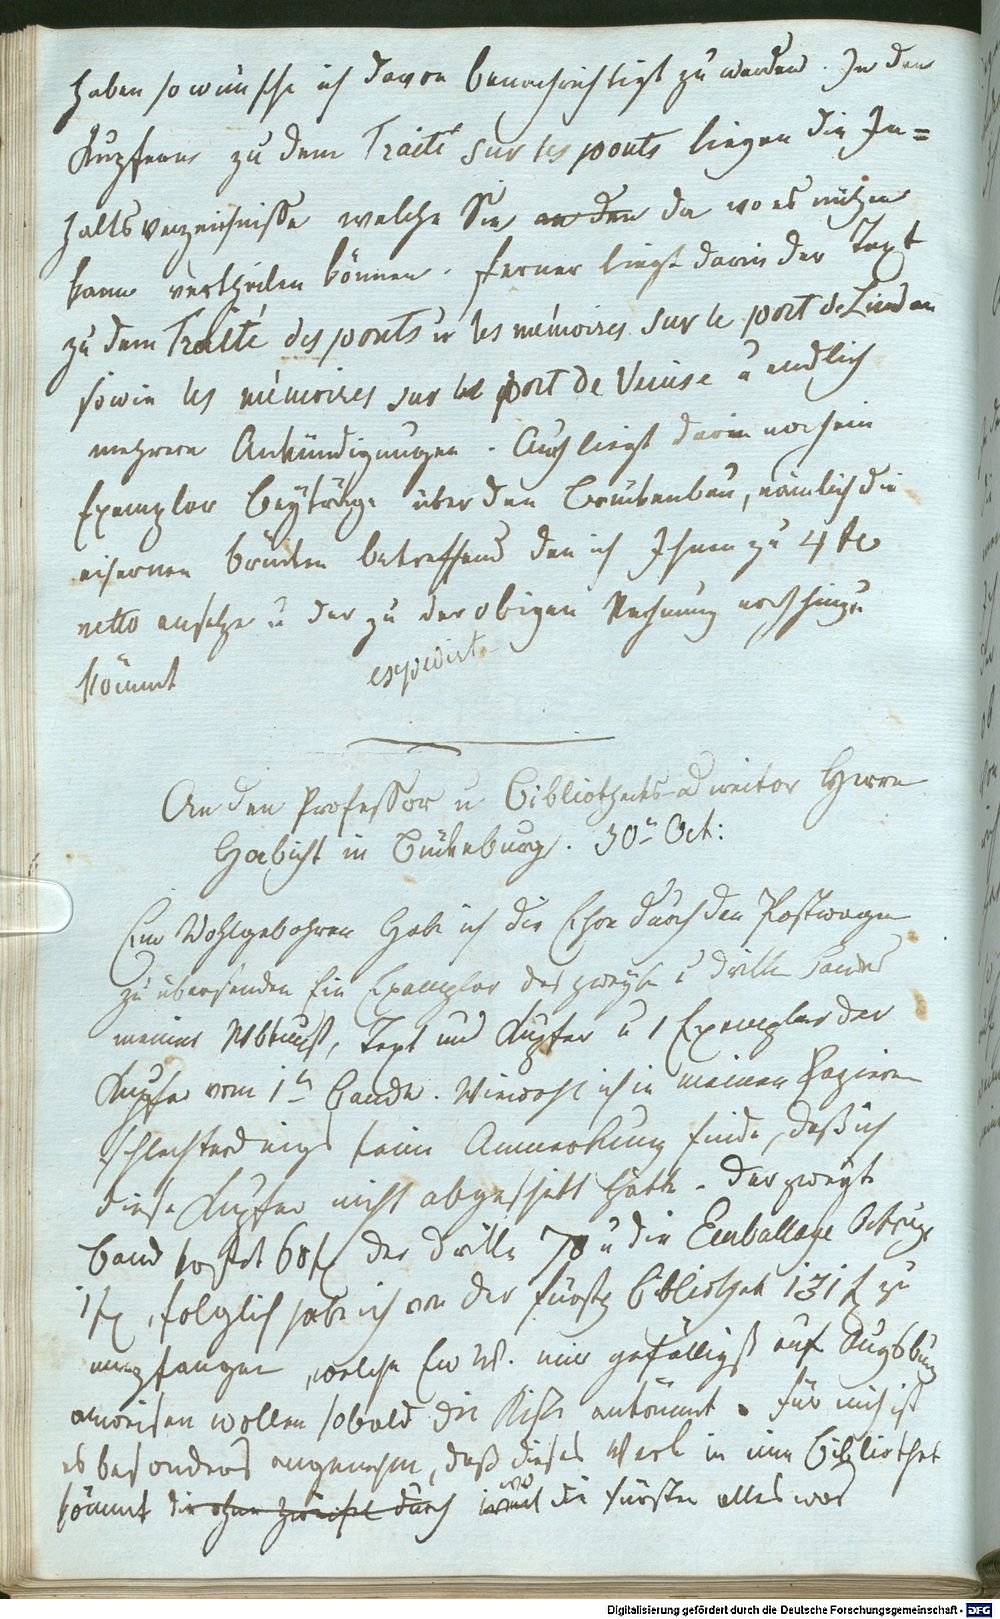 haben so wünsche ich davon benachrichtigt zu werden. In den
Kupfern zu dem Traité sur les ponts liegen die In=
haltsverzeichnisse welche Sie an den da wo es nützen
kann vertheilen können. ferner liegt darin der Text
zu dem Traité des ponts u les mémoires sur le port de Lindau
sowie les mémoires sur le port de Venise u endlich
mehrere Ankündigungen. Auch liegt darin noch ein
Exemplar Beyträge über den Brückenbau, nämlich die
eisernen Brücken betreffend den ich Ihnen zu 4 fl
netto ansetze u der zu der obigen Rechnung noch hinzu
kömmt expedirt

An den Professor u Bibliotheks Herrn
Habicht in Bückeburg. 30n Oct:
Eur Wohlgebohren habe ich die Ehre durch den Postwagen
zu übersenden Ein Exemplar des zweyten u dritten Bandes
meiner Wbkunst, Text und Kupfer u 1 Exemplar der
Kupfer vom 1tn Bande. Wiewohl ich in meinen Papieren
schlechterdings keine Anmerkung finde, daß ich
diese Kupfer nicht abgeschickt hätte. Der zweyte
Band kostet 60 f der dritte 70 u die Emballage
1 f, folglich habe ich von der fürstl Bibliothek 131 f zu
empfangen, welche Ew W. mir gefälligst auf Augsburg
anweisen wollen sobald die Kiste ankömmt. Für mich ist
es besonders angenehm, daß dieses Werk in eine Bibliothek
kömmt die ohne Zweifel durch wo die Fürsten alles was
Digitalisierung gefördert durch die Deutsche Forschungsgemeinschaft - DFG